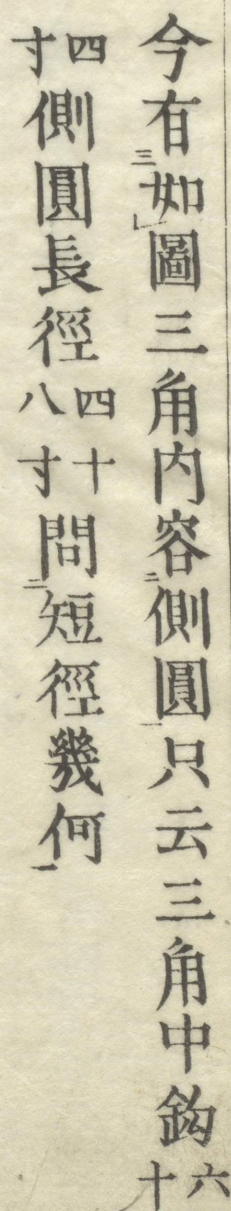 今有三如レ圖三角内容二側圓一只云三角中鈎六十
四寸側圓長徑四十八寸問二短徑幾何一